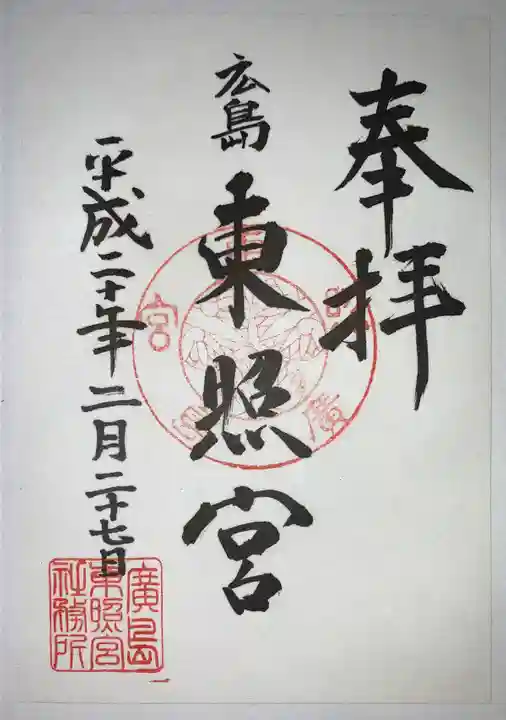 奉拝
広島
東照宮
平成二十年二月二十七日
廣島
東照宮
社務所